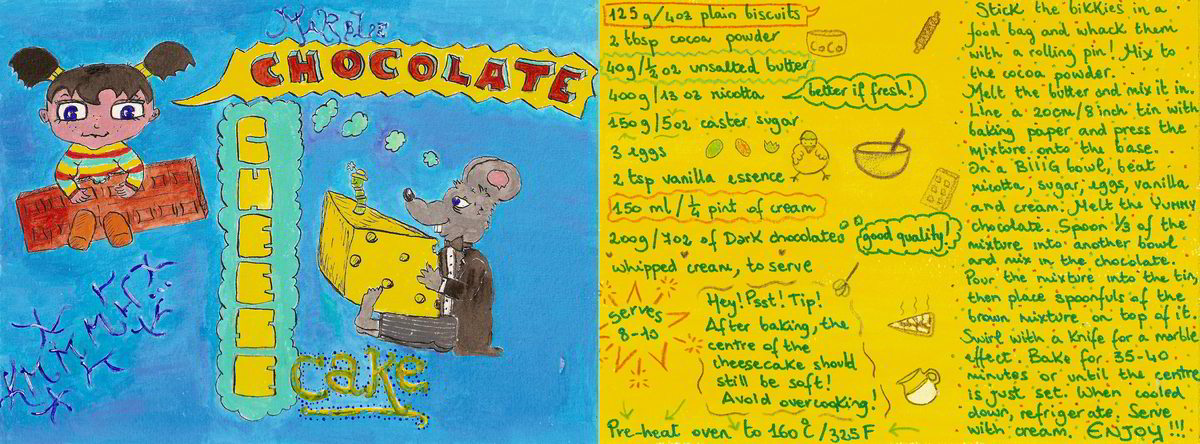 MARBLE
CHOCOLATE
cake
125g/4oz plain biscuits
2 tbsp cocoa powder
COCO
40g/1/2 oz unsalted butter
400g/13 oz ricotta
better if fresh!
150g/5oz caster sugar
3 eggs
2 tsp vanilla essence
150 ml/1/4 pint of cream
200g/7oz of Dark chocolates
good quality!
whipped cream, to serve
serves
8-10
Hey! Psst! Tip!
After baking, the
centre of the
cheesecake should
still be soft!
Avoid overcooking!
Pre-heat oven to 160°C/325F
Stick the bikkies in a
food bag and whack them
with a rolling pin! Mix to
the cocoa powder.
Melt the butter and mix it in.
Line a 20cm/8 inch tin with
baking paper and press the
mixture onto the base.
In a BIIIG bowl, beat
ricotta, sugar, eggs, vanilla
and cream. Melt the YUMMY
chocolate. Spoon 1/3 of the
mixture into another bowl
and mix in the chocolate.
Pour the mixture into the tin,
then place spoonfuls of the
brown mixture on top of it.
Swirl with a knife for a marble
effect. Bake for 35-40
minutes or until the centre
is just set. When cooled
down, refrigerate. Serve
with cream. ENJOY!!!